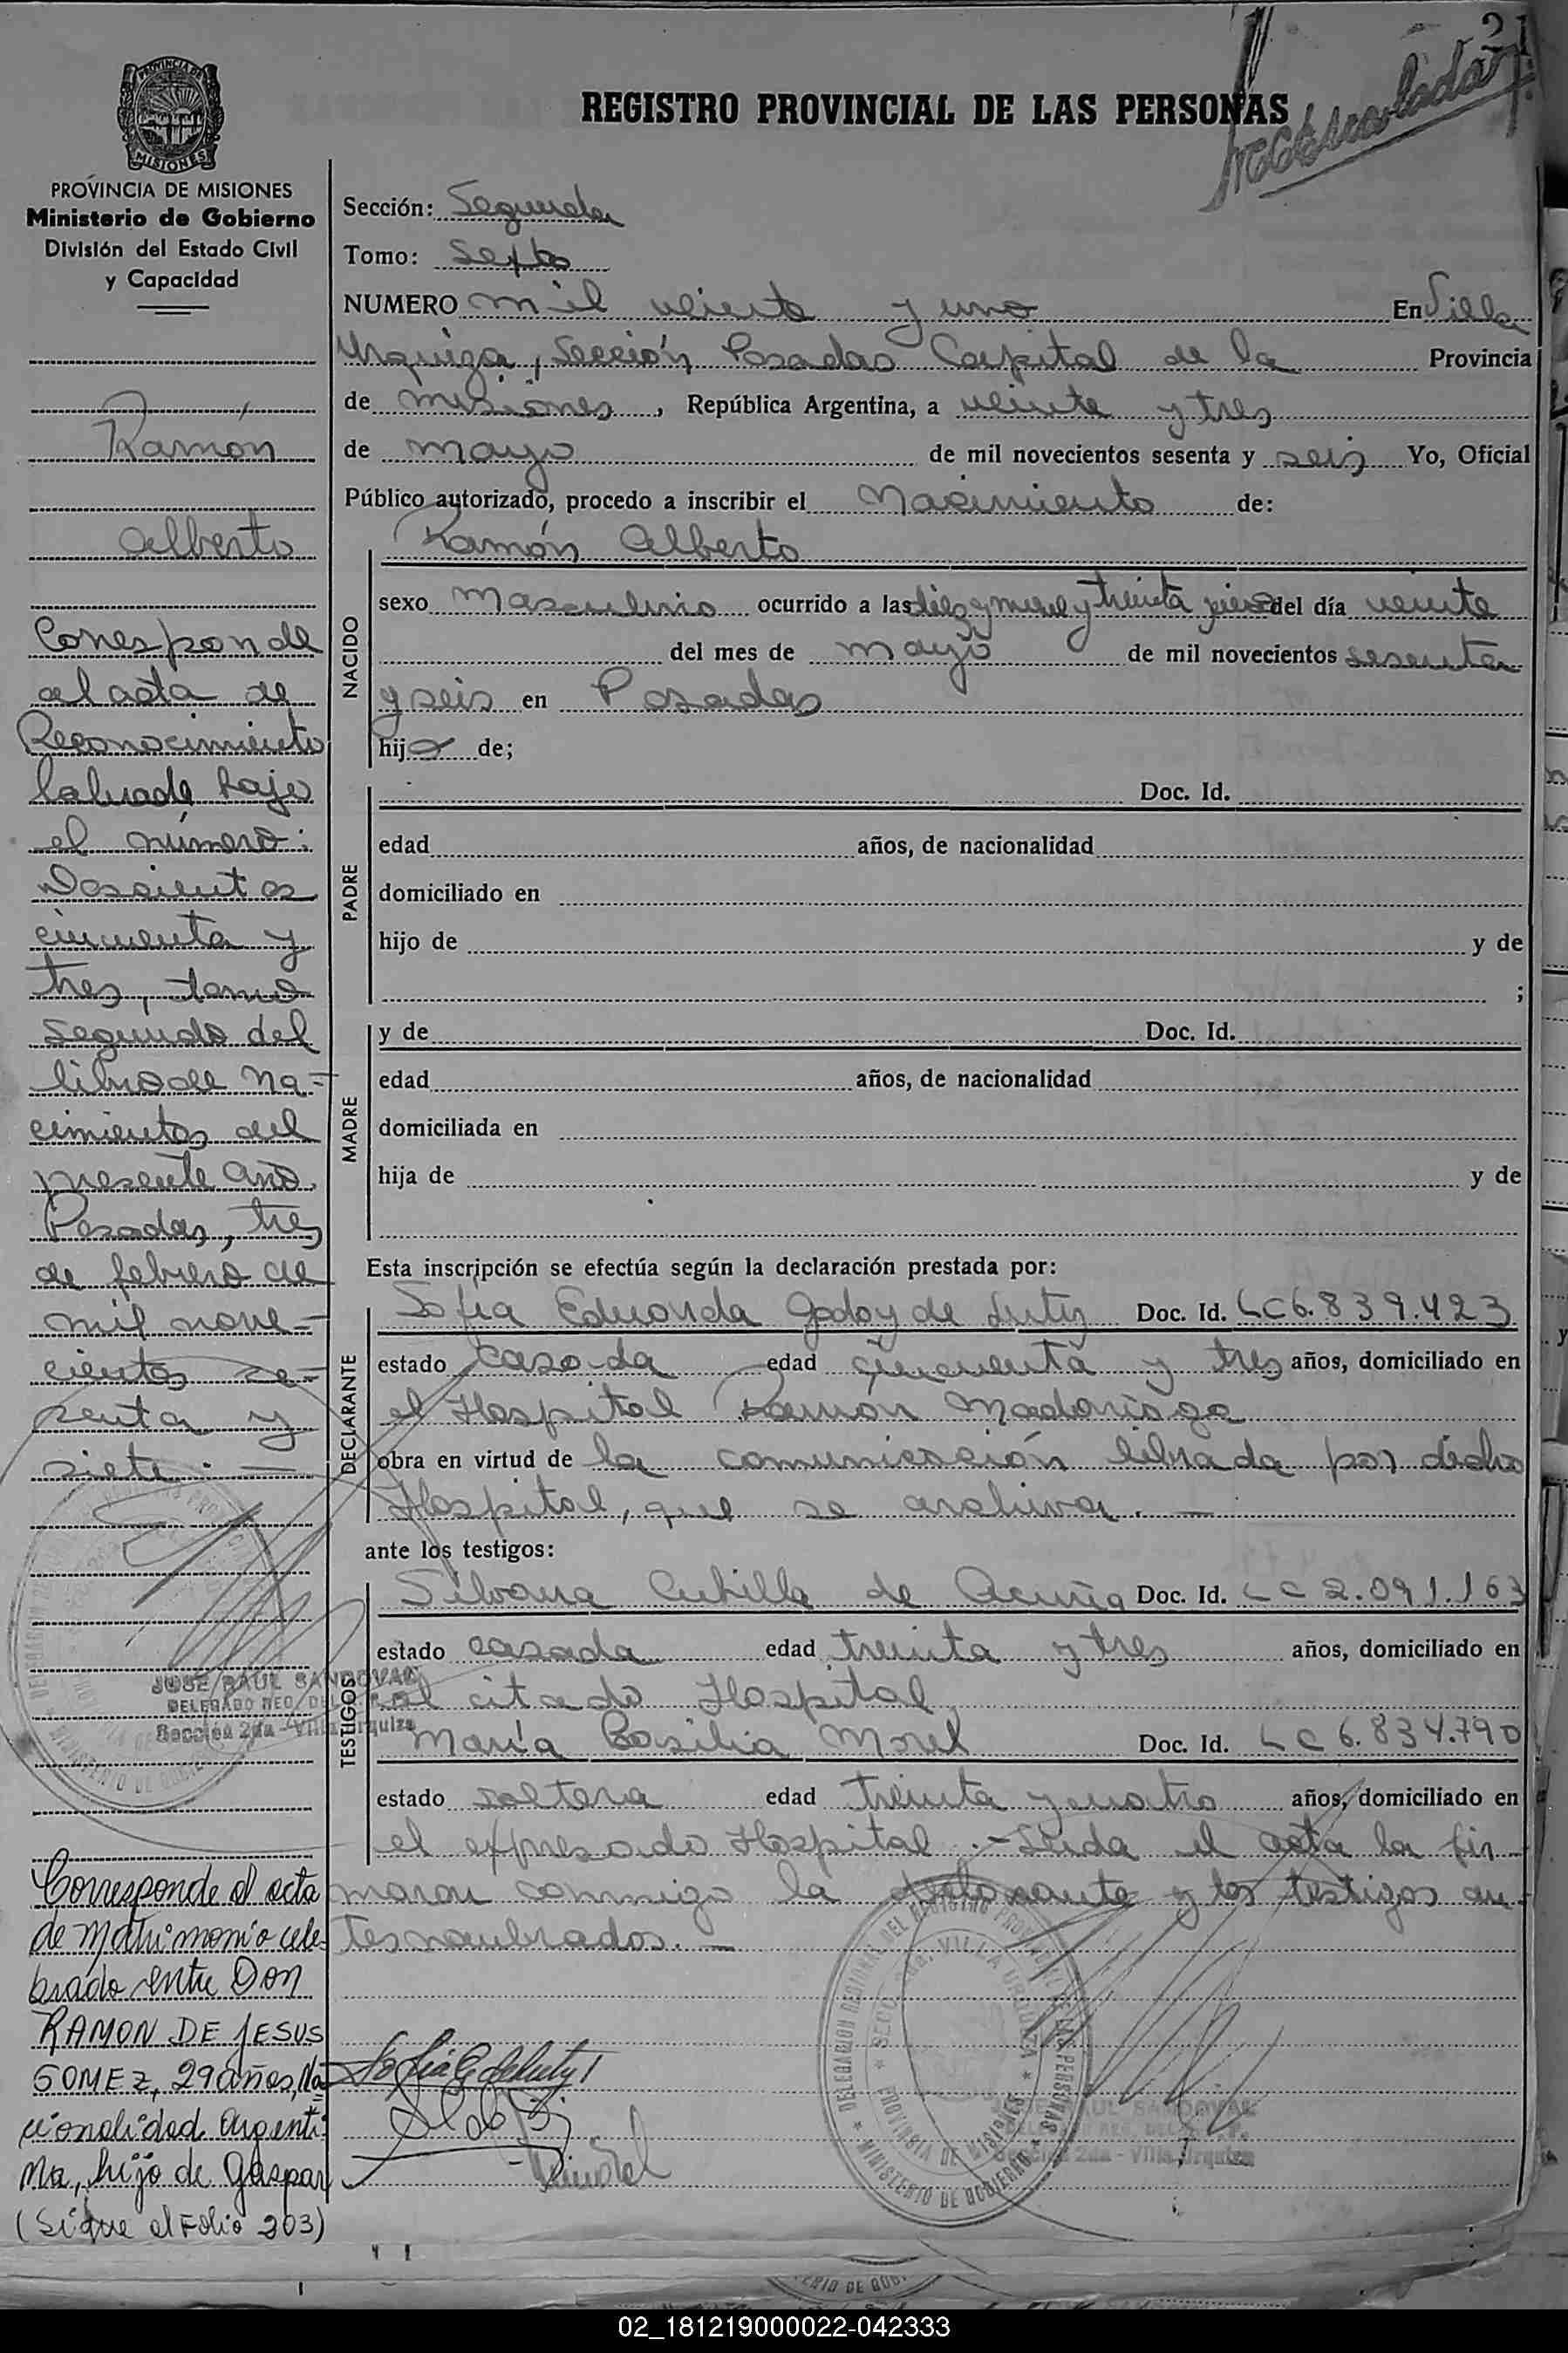 21
REGISTRO PROVINCIAL DE LAS PERSONAS
PROVINCIA DE MISIONES
Ministerio de Gobierno
División del Estado Civil
y Capacidad
Ramón
Alberto
Corresponde
al acta de
Reconocimiento
labrada bajo
el número:
Doscientos
cincuenta y
tres, tomo
segundo del
libro de Na-
cimientos del
presente año.
Posadas, tres
de febrero de
mil nove-
cientos se-
senta y
siete. -
JOSE RAUL SANDOVAL
DELEGADO REG. DE
Sección 2da - Villa Urquiza
Corresponde al acta
de Matrimonio cele-
brado entre Don
RAMON DE JESUS
GOMEZ, 29 años, Na-
cionalidad Argenti-
na, hijo de Gaspar
(Sigue al Folio 203)
Sección: Segunda
Tomo: Sexto
NUMERO mil veinte y uno En Villa
Urquiza, Sección Posadas Capital de la Provincia
de misiones, República Argentina, a veinte y tres
de mayo de mil novecientos sesenta y seis Yo, Oficial
Público autorizado, procedo a inscribir el Nacimiento de:
NACIDO
Ramón Alberto
sexo Masculino ocurrido a las diez y nueve y treinta del día veinte
del mes de mayo de mil novecientos sesenta
y seis en Posadas
hijo de;
PADRE
Doc. Id.
edad años, de nacionalidad
domiciliado en
hijo de y de
;
MADRE
y de Doc. Id.
edad años, de nacionalidad
domiciliada en
hija de y de
Esta inscripción se efectúa según la declaración prestada por:
DECLARANTE
Sofia Eduarda Godoy de Doc. Id. LC 6.839.423
estado casada edad cincuenta y tres años, domiciliado en
el Hospital Ramón Madariaga
obra en virtud de la comunicación librada por dicho
Hospital, que se archiva. -
ante los testigos:
TESTIGOS
Silvana Cubilla de Acuña Doc. Id. LC 2.091.163
estado casada edad treinta y tres años, domiciliado en
el citado Hospital
María Basilia Morel Doc. Id. LC 6.834.790
estado soltera edad treinta y cuatro años, domiciliado en
el expresado Hospital .- Leida el acta la fir-
maron conmigo la declarante y los testigos an-
tes nombrados. -
DELEGACION REGIONAL DEL REGISTRO PROVINCIAL DE LAS PERSONAS
SECC. 2da. VILLA URQUIZA
PROVINCIA DE MISIONES
MINISTERIO DE GOBIERNO
JOSE RAUL SANDOVAL
Sección 2da - Villa Urquiza
02_181219000022-042333